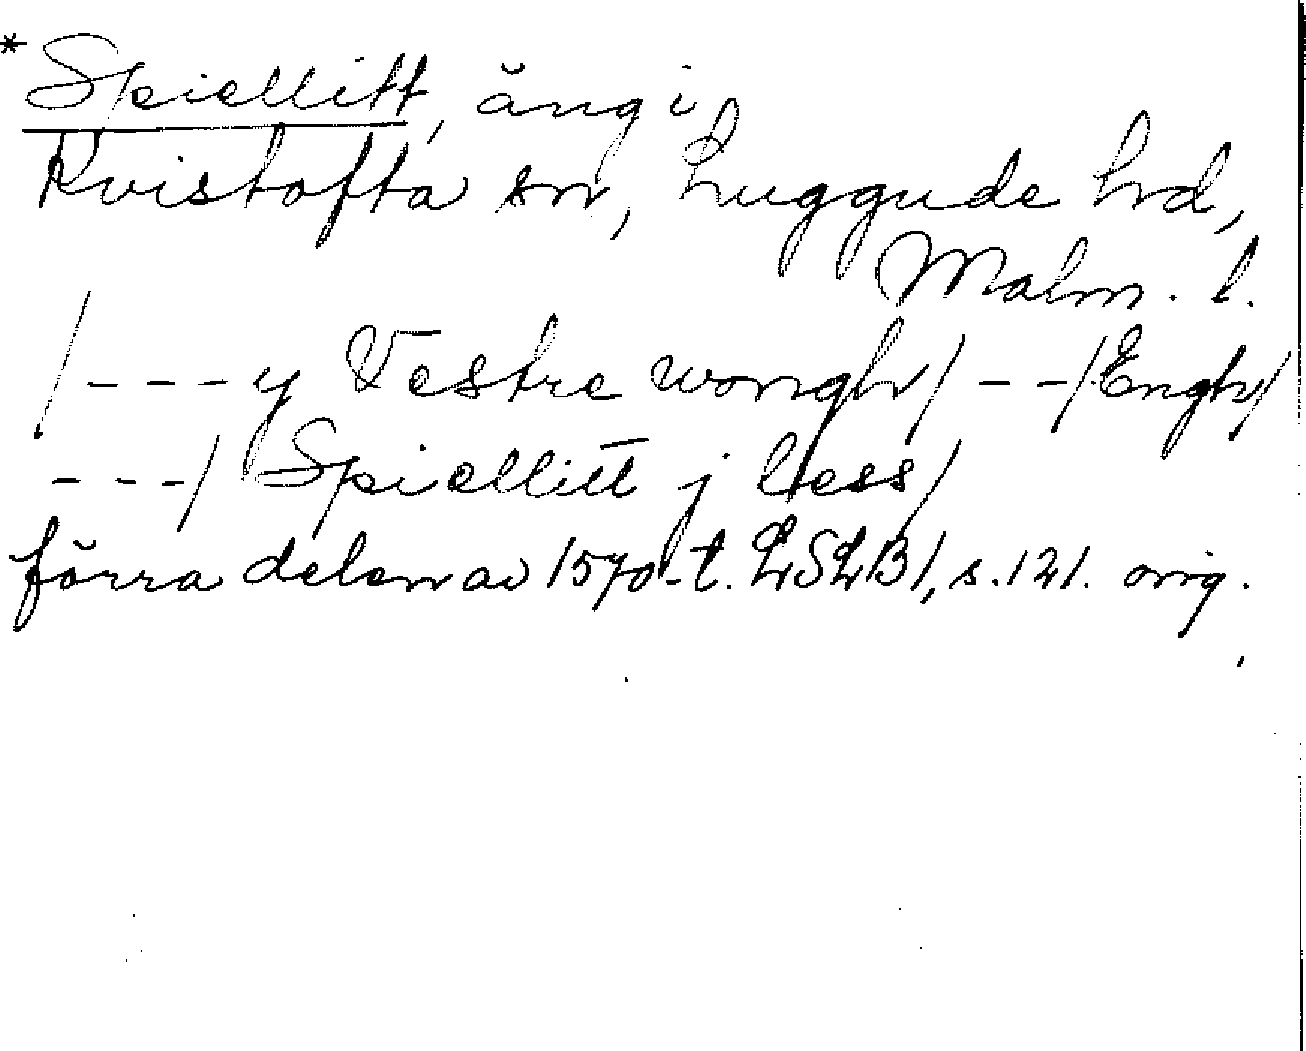 *Spiellitt, äng i
Kvistofta sn, Luggude hd,
Malm. l.
/---y Vestre wongh/--/Engh/
---/ Spiellitt j less/
förra delen av 1570-t. LSLB1, s. 121. orig.